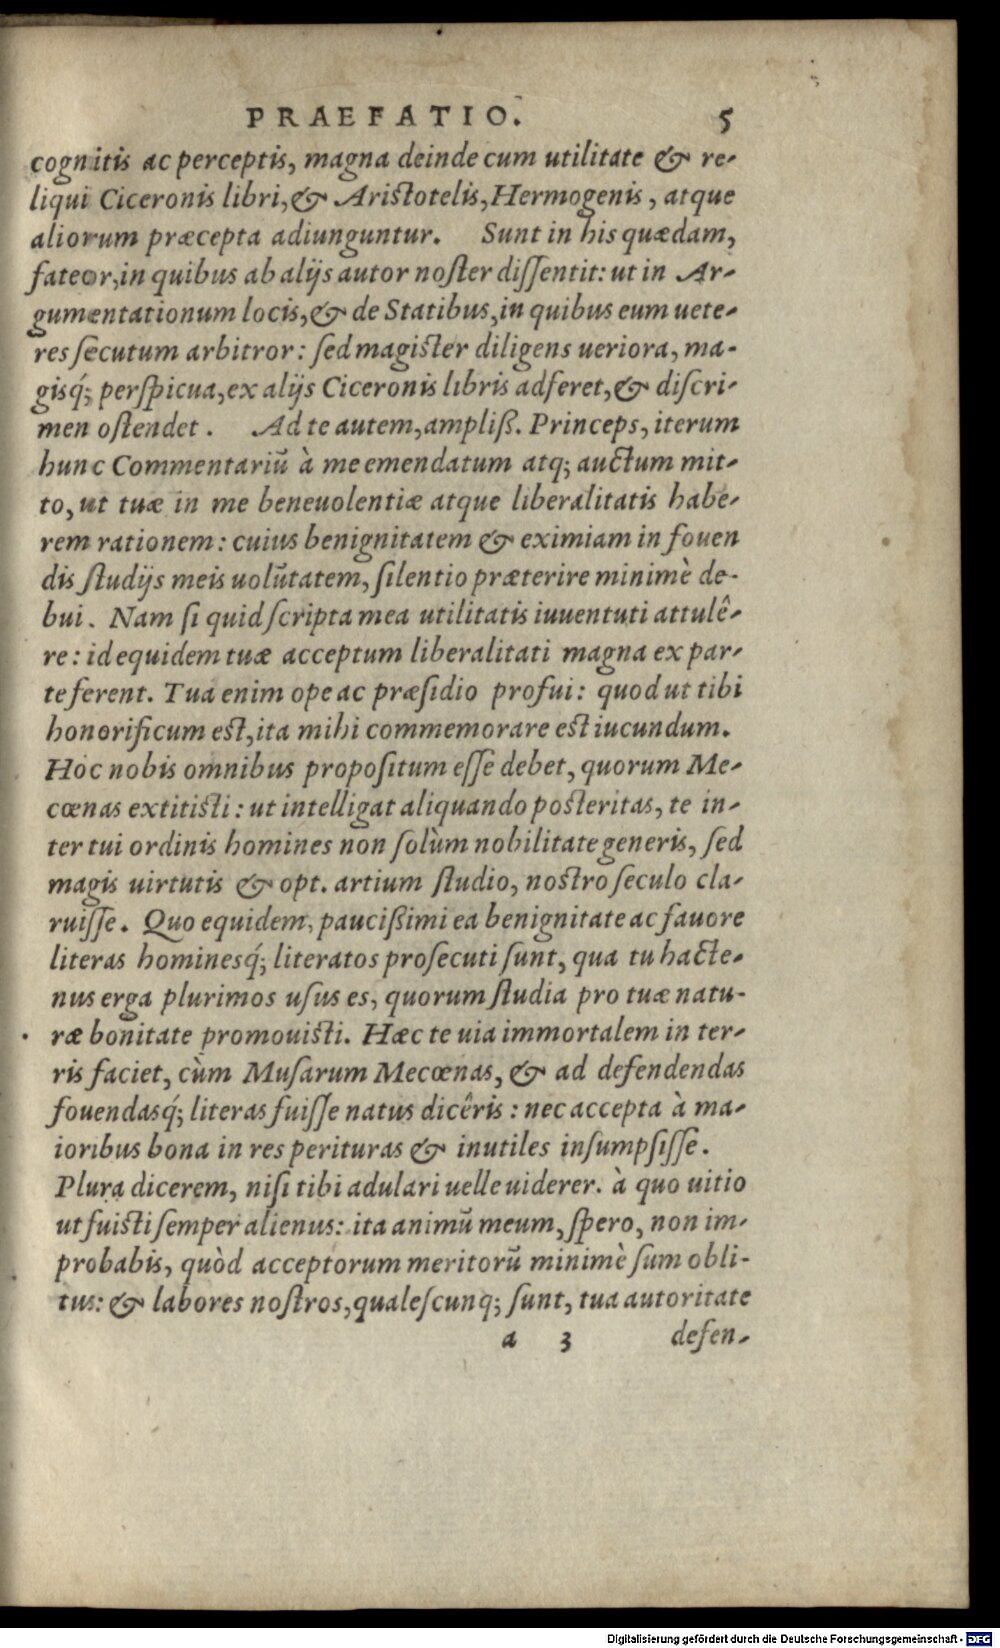 PRAEFATIO. 5
cognitis ac perceptis, magna deinde cum utilitate & re-
liqui Ciceronis libri, & Aristotelis, Hermogenis, atque
aliorum præcepta adiunguntur. Sunt in his quædam,
fateor, in quibus ab alijs autor noſter diſſentit: ut in Ar-
gumentationum locis, & de Statibus, in quibus eum uete-
res ſecutum arbitror: ſed magister diligens ueriora, ma-
gisq́; perſpicua, ex alijs Ciceronis libris adferet, & diſcri-
men oſtendet. Ad te autem, ampliß. Princeps, iterum
hunc Commentariũ à me emendatum atq; auctum mit-
to, ut tuæ in me beneuolentiæ atque liberalitatis habe-
rem rationem: cuius benignitatem & eximiam in fouen
dis ſtudijs meis uolũtatem, ſilentio præterire minimè de-
bui. Nam ſi quid ſcripta mea utilitatis iuuentuti attulê-
re: id equidem tuæ acceptum liberalitati magna ex par-
te ferent. Tua enim ope ac præſidio profui: quod ut tibi
honorificum est, ita mihi commemorare est iucundum.
Hoc nobis omnibus propoſitum eſſe debet, quorum Me-
cœnas extitisti: ut intelligat aliquando posteritas, te in-
ter tui ordinis homines non ſolùm nobilitate generis, ſed
magis uirtutis & opt. artium ſtudio, nostro ſeculo cla-
ruiſſe. Quo equidem, paucißimi ea benignitate ac fauore
literas hominesq́; literatos proſecuti ſunt, qua tu hacte-
nus erga plurimos uſus es, quorum ſtudia pro tuæ natu-
ræ bonitate promouisti. Hæc te uia immortalem in ter-
ris faciet, cùm Muſarum Mecœnas, & ad defendendas
fouendasq́; literas fuiſſe natus dicêris: nec accepta à ma-
ioribus bona in res perituras & inutiles inſumpſiſſe.
Plura dicerem, niſi tibi adulari uelle uiderer. à quo uitio
ut fuisti ſemper alienus: ita animũ meum, ſpero, non im-
probabis, quòd acceptorum meritorũ minimè ſum obli-
tus: & labores noſtros, qualeſcunq; ſunt, tua autoritate
a 3 defen-
Digitalisierung gefördert durch die Deutsche Forschungsgemeinschaft - DFG